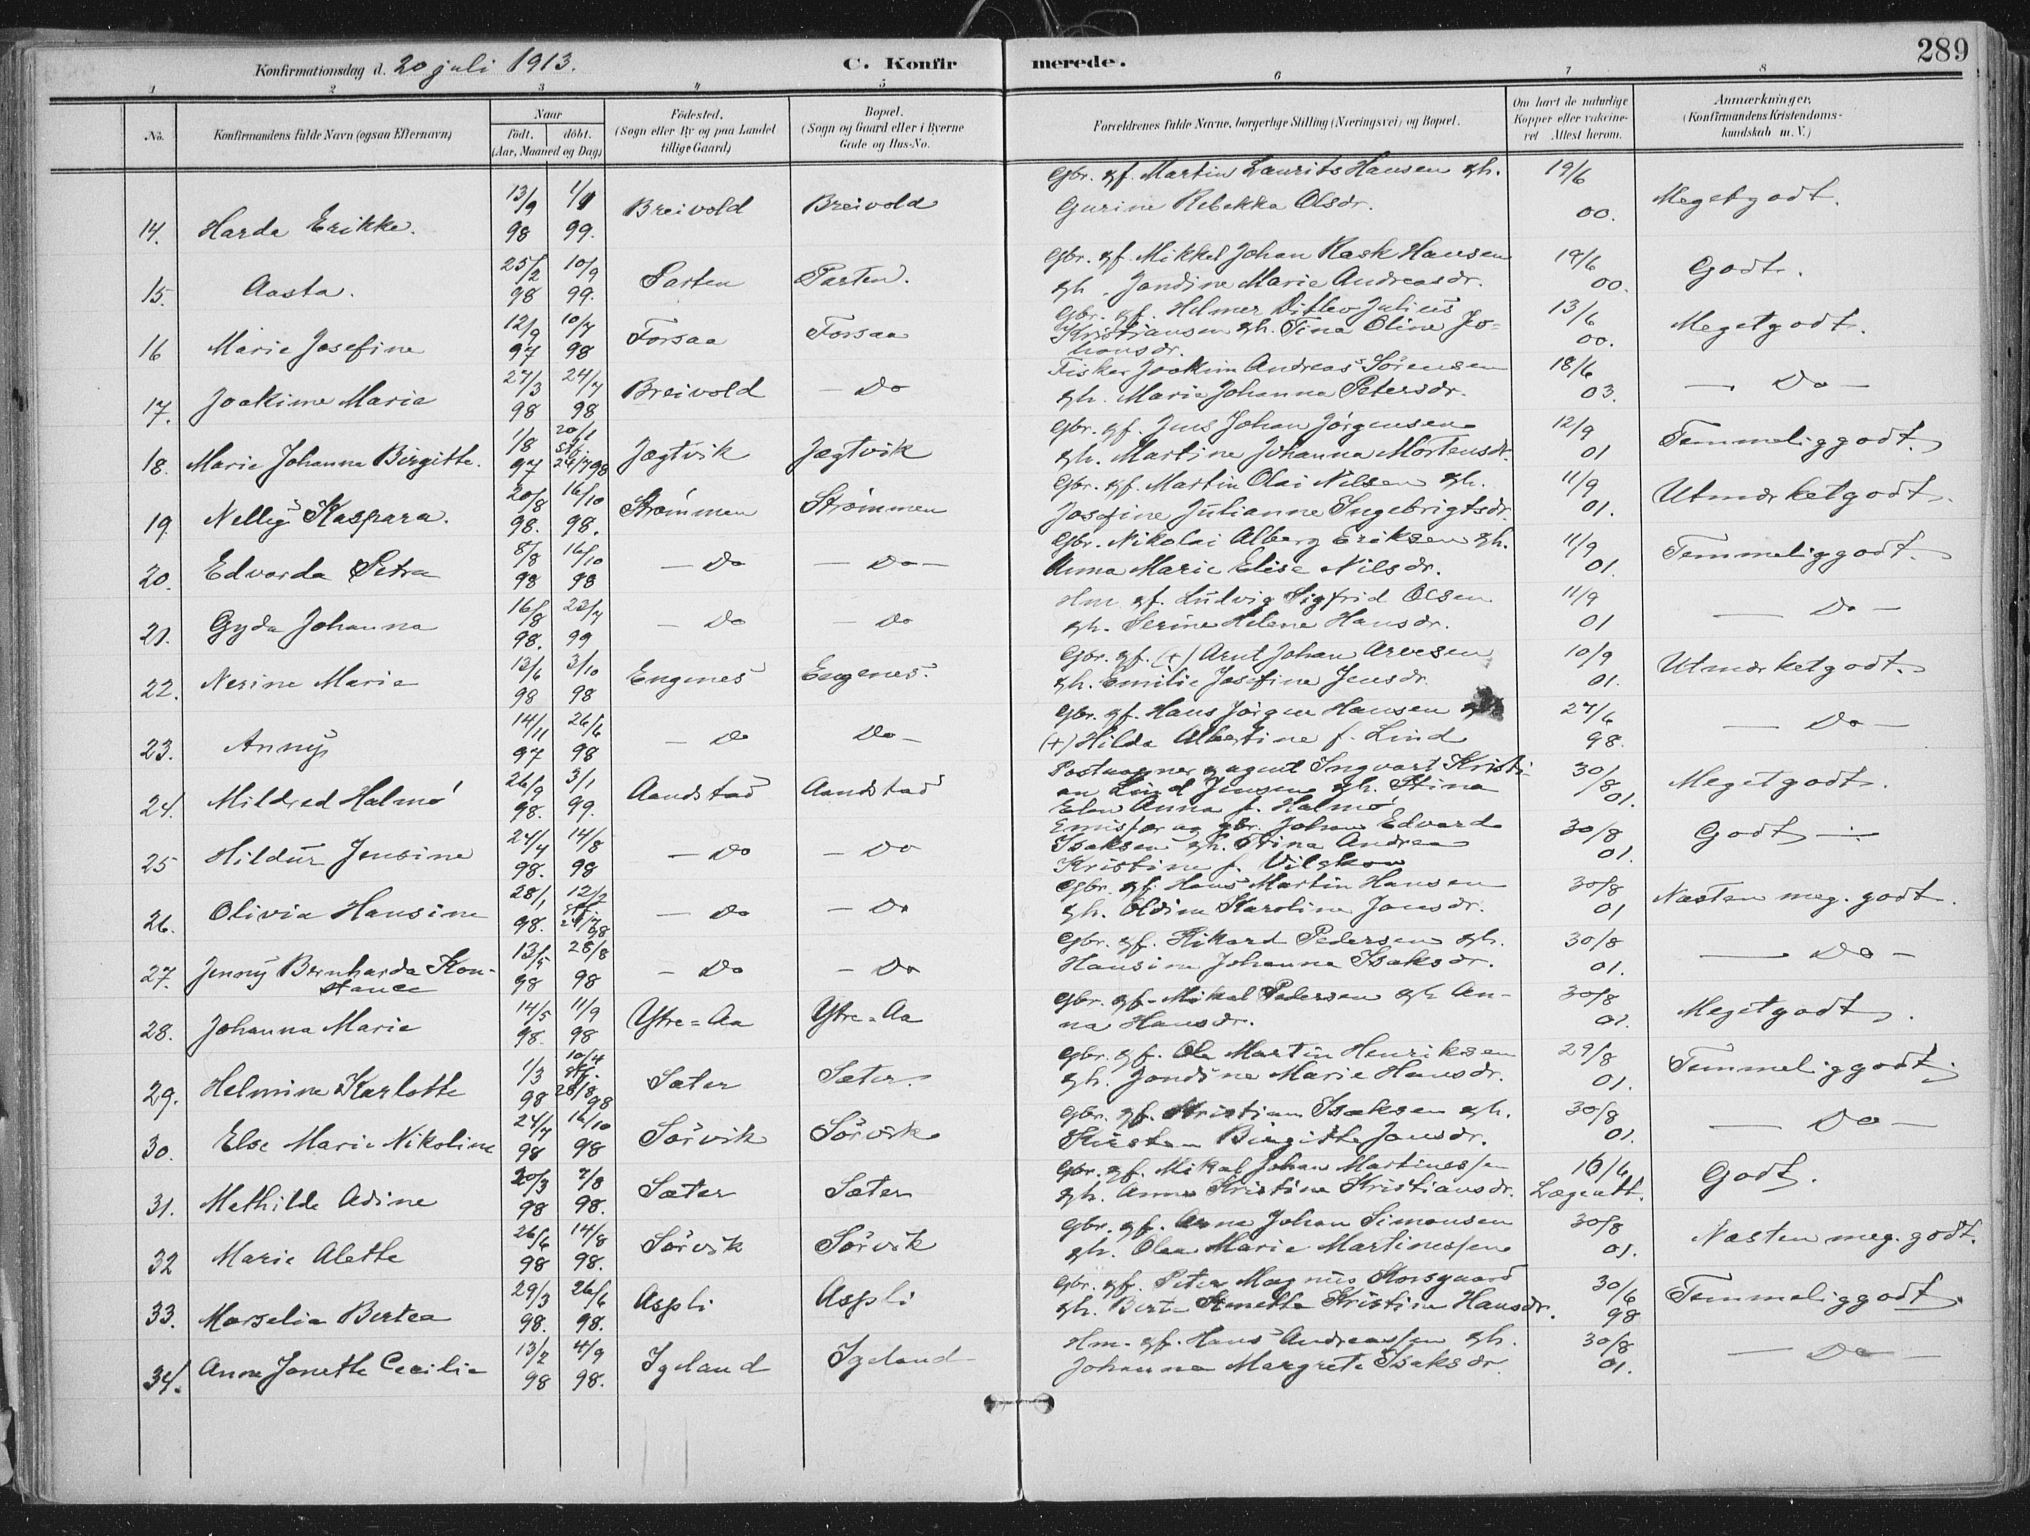 289
Konfirmationsdag d. 20 juli 1913.
C. Konfirmerede.
1 2 3 4 5 6 7 8
No.
Konfirmandens fulde Navn (ogsaa Efternavn)
Naar
født. døbt.
(Aar, Maaned og Dag)
Fødested.
(Sogn eller By og paa Landet
tillige Gaard)
Bopæl.
(Sogn og Gaard eller i Byerne
Gade og Hus-No.
Forældrenes fulde Navne, borgerlige Stilling (Næringsvei) og Bopæl.
Om havt de naturlige
Kopper eller vakcine-
ret Attest herom.
Anmærkninger.
(Konfirmandens Kristendoms-
kundskab m. V.)
14. Harda Erikke. 13/9 98 99. Breivold Breivold Gbr. gf. Martin Laurits Hansen gh. 19/6 00. Megetgodt.
Gurine Rebekka Olsdr.
15. Aasta. 25/2 98 10/9 99. Parten Parten. Gbr. gf. Mikkel Johan Rask Hansen 19/6 00. Godt.
gh. Jondine Marie Andreasdr.
16 Marie Josefine 12/9 97 10/7 98 Forsaa Forsaa Gbr. gf. Helmer Ditlev Julius 13/6 00. Megetgodt.
Kristiansen gh. Tina Oline Jo-
hansdr.
17. Joakime Marie 27/3 98 24/7 98 Breivold — Do Fisker Joakim Andreas Sørensen 18/6 03. — Do —
gh. Marie Johanna Petersdr.
18. Marie Johanna Birgitte. 1/8 97 20/1 Stf. 24/7 98 Jægtvik Jægtvik Gbr. gf. Jens Johan Jørgensen 12/9 01 Temmeliggodt.
gh. Martine Johanna Mortensdr.
19. Nelly Kaspara. 20/8 98. 16/10 98. Strømmen Strømmen Gbr. gf. Martin Olai Nilsen gh. 11/9 01. Utmærketgodt.
Josefine Julianne Ingebrigtsdr.
20. Edvarda Petra 8/8 98 16/10 98 — Do — Do — Gbr. Nikolai Alberg Eriksen gh. 11/9 01. Temmeliggodt.
Anna Marie Elise Nilsdr.
21. Gyda Johanna 16/8 98. 23/7 99 — Do — Do Hm. gf. Ludvig Sigfrid Olsen 11/9 01 — Do —
gh. Serine Helene Hansdr.
22. Nerine Marie 13/6 98 3/10 98 Engenes Engenes. Gbr. gf. (+) Arnt Johan Arvesen 10/9 01. Utmærketgodt.
gh. Emilie Josefine Jensdr.
23. Anny 14/11 97 26/6 98 — Do Do — Gbr. gf. Hans Jørgen Hansen 27/6 98. — Do —
(+) Hilda Albertine f. Lind
24. Mildred Halmø 26/9 98. 3/1 99. Aandstad Aandstad Postaapner & agent Ingvart Kristi- 30/8 01. Megetgodt.
an Lind Jensen gh. Stina
Elen Anna f. Halmø
25 Hildur Jensine 24/4 98. 14/8 98 — Do — Do Emissær og gbr. Johan Edvard 30/8 01. Godt —
Isaksen gh. Stina Andrea
Kristine f.
26. Olivia Hansine 28/1 98. 12/2 Stf. Do — Do Gbr. gf. Hans Martin Hansen 30/8 01 Næsten meg. godt.
gh. Oldine Karoline Jonsdr.
27. Jenny Bernharda Kon- 13/5 98 28/8 98 — Do — Do Gbr. gf. Rikard Pedersen gh. 30/8 01. — Do —
stance Hansine Johanna Isaksdr.
28. Johanna Marie 14/5 98. 11/9 98 Ytre=Aa Ytre=Aa Gbr. gf. Mikal Pedersen gh. An- 30/8 01. Megetgodt.
na Hansdr.
29. Helmine Karlotte 1/3 98 10/4 Stf. 28/8 98 Sæter Sæter. Gbr. gf. Ole Martin Henriksen 29/8 01. Temmeliggodt.
gh. Jondine Marie Hansdr.
30. Else Marie Nikoline 24/7 98 16/10 98 Sørvik Sørvik Gbr. gf. Kristian Isaksen gh. 30/8 01. — Do —
Kirsten Birgitte Jonsdr.
31. Mathilde Adine 20/3 98 7/8 98. Sæter Sæter Gbr. gf. Mikal Johan Martinussen 16/6 Lægeatt. Godt.
gh. Anne Kristine Kristiansdr.
32 Marie Alette 26/6 98 14/8 98. Sørvik Sørvik Gbr. gf. Arne Johan Simonsen 30/8 01. Næsten meg. godt.
gh. Olea Marie Martinessen
33. Marselia Bertea 29/3 98. 26/6 98. Aspli Aspli Gbr. gf. Peter Magnus Korsgaard 30/6 98 Temmeliggodt.
gh. Kristine Hansdr.
34. Anna Janette Cecilie 13/2 98 4/9 98. Igeland Igeland Hm. gf. Hans Andreassen gh. 30/8 01. — Do —
Johanna Margrete Isaksdr.